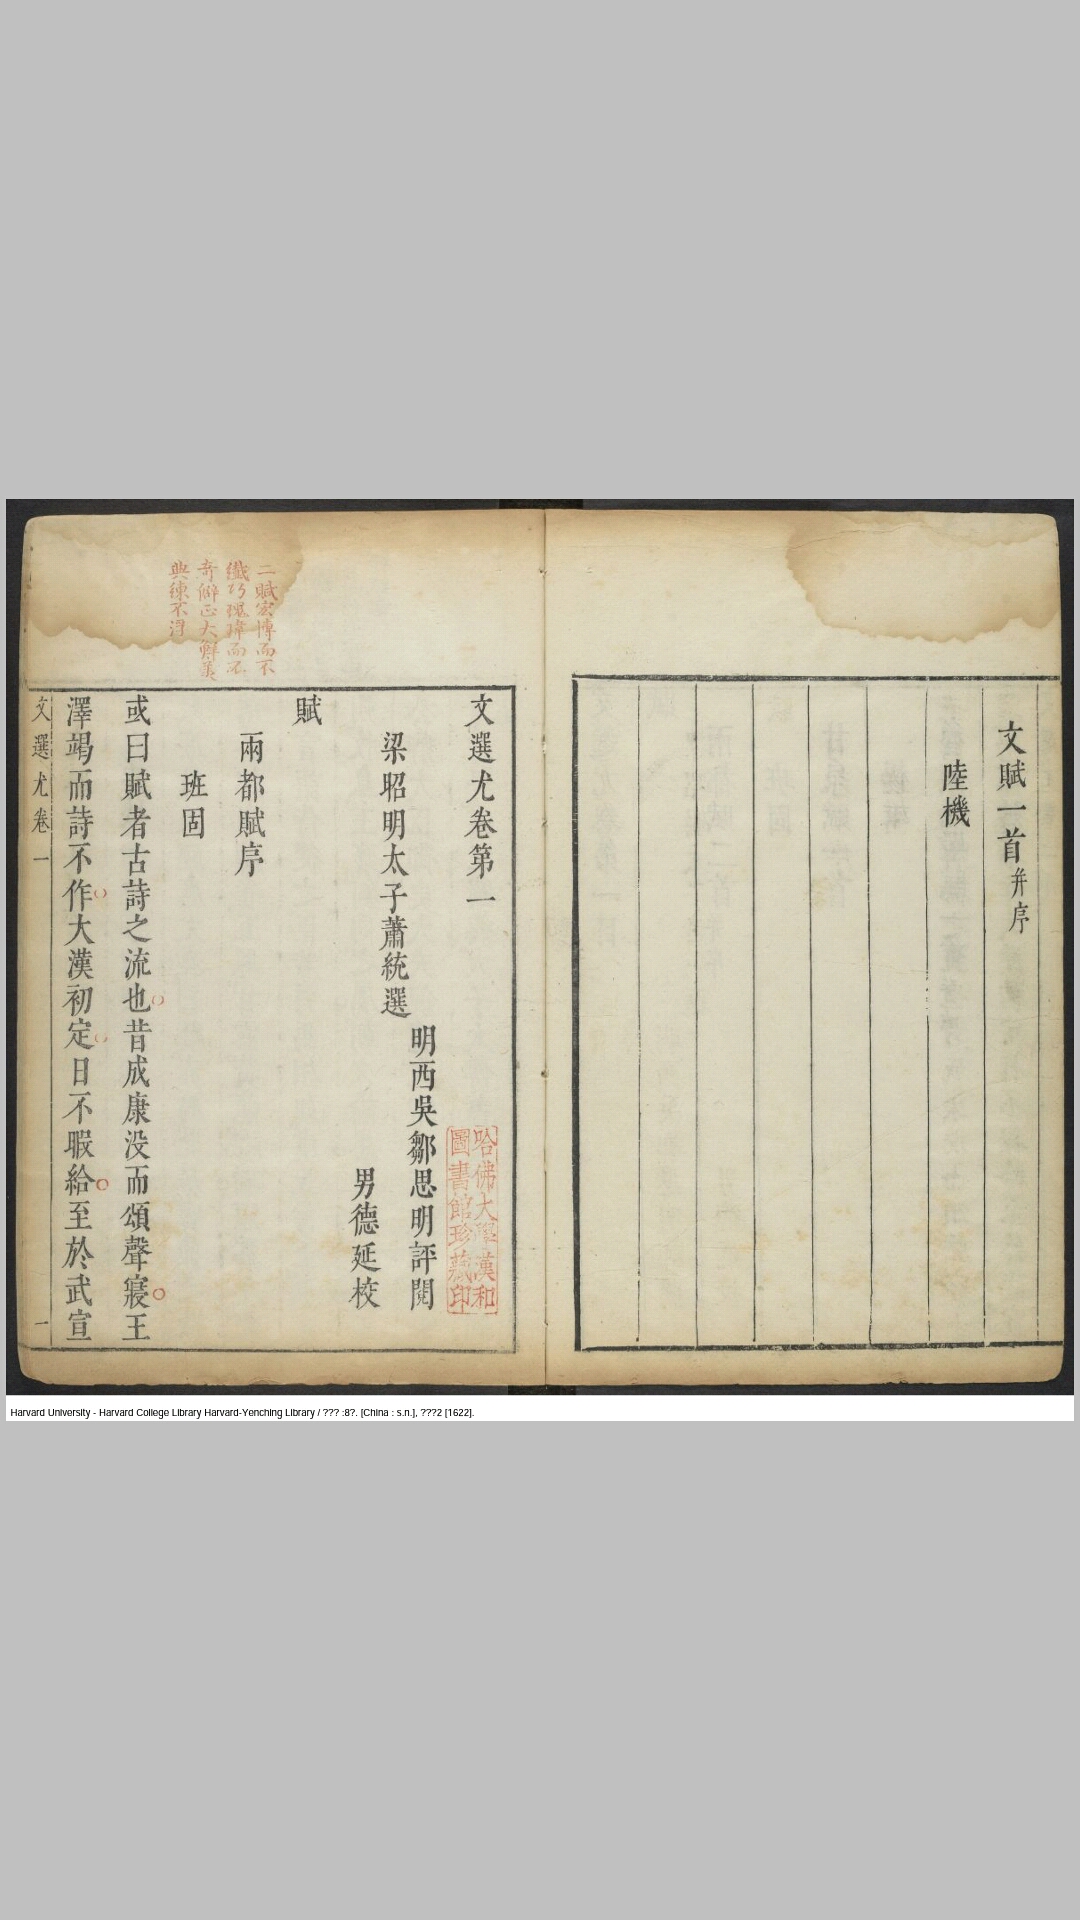 文賦一首并序
陸機
文選尤卷第一
明西吳鄒思明評閱
梁昭明太子蕭統選
男德延校
賦
兩都賦序
班固
或曰賦者古詩之流也昔成康没而頌聲寢王
澤竭而詩不作大漢初定日不暇給至於武宣
文選尤卷一
一
二賦宏博而不
纖巧瑰瑋而不
奇僻正大鮮美
典練不浮
哈佛大學漢和
圖書館珍藏印
Harvard University - Harvard College Library Harvard-Yenching Library / ??? :8?. [China : s.n.], ???2 [1622].